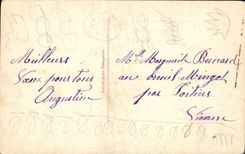 Meilleurs
Vœux pour tous
Augustine
Mlle Marguerite Bernard
au breuil Mingot
par Poitiers
Vienne